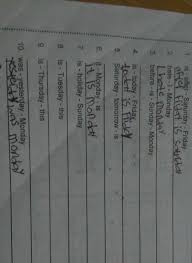 Saturday - Friday
friday is
2. hate - I - Monday
I hate monday
3. before - is - Sunday - Monday
4. is - today - Friday
today is friday
5. Saturday - tomorrow - is
6. it - Monday - is
It is monday
7. is - holiday - Sunday
8. is - Tuesday - this
9. is - Thursday - this
10. was - yesterday - Monday
yesterday was monday